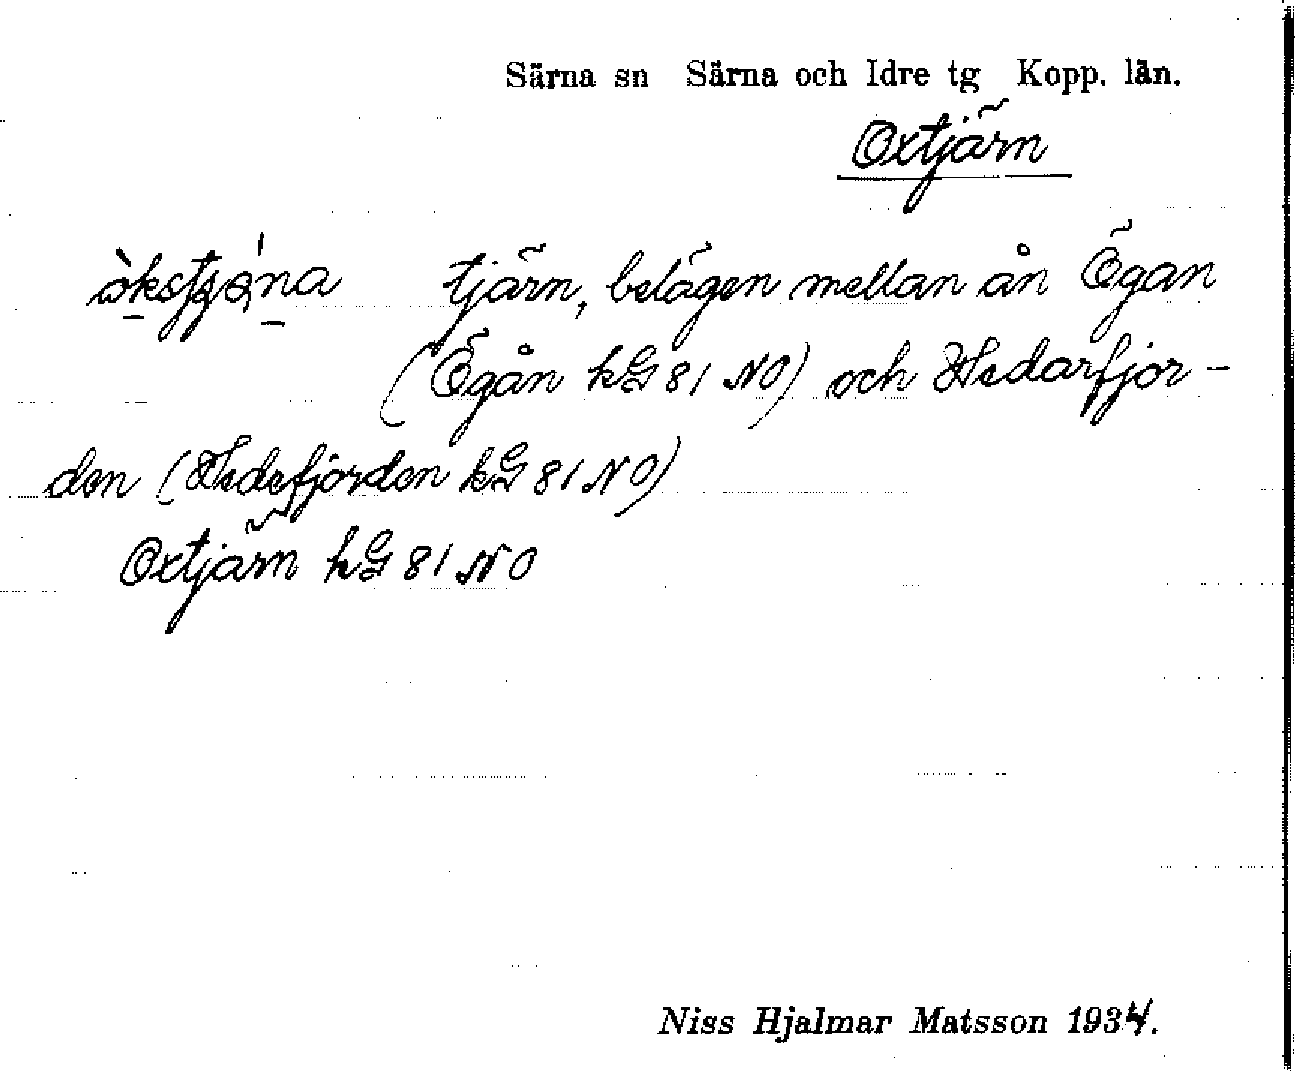 Särna sn Särna och Idre tg Kopp. län.
Oxtjärn
tjärn, belägen mellan ån Ögan
(Ögån kG 81 NO) och Hedarfjor-
den (Hedefjorden kG 81 NO)
Oxtjärn kG 81 NO
Niss Hjalmar Matsson 1934.